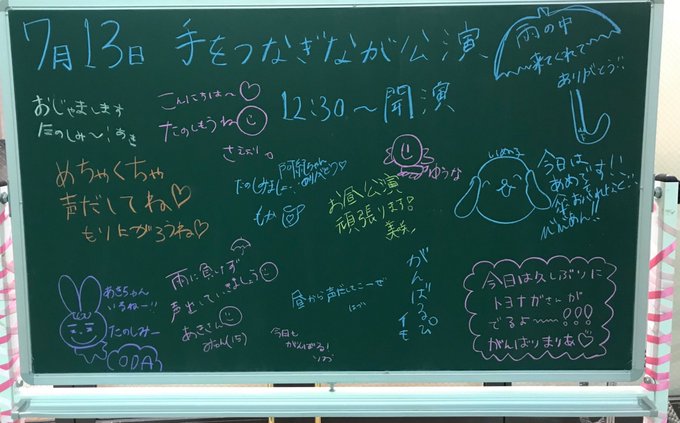 7月13日 手をつなぎながら公演
12:30〜開演
雨の中
来てくれて
ありがとう!!
おじゃまします
たのしみ〜! あき
こんにちは〜♡
たのしもうね
さえぶり
めちゃくちゃ
声だしてね♡
もりにがろうね♡
たのしみましー
ゆうな
お昼公演
頑張ります!
美味
今日は
あめです!!
雨に負けず
声出していきましょう
あきさん
みoん(15)
昼から声だしてこーぜ
今日も
がんばる!
がんばるぴ
イモ
あきちゃん
いるねー!!
たのしみー
ODA
今日は久しぶりに
トヨナガさんが
でるよ〜〜!!!
がんばりまりあ♡